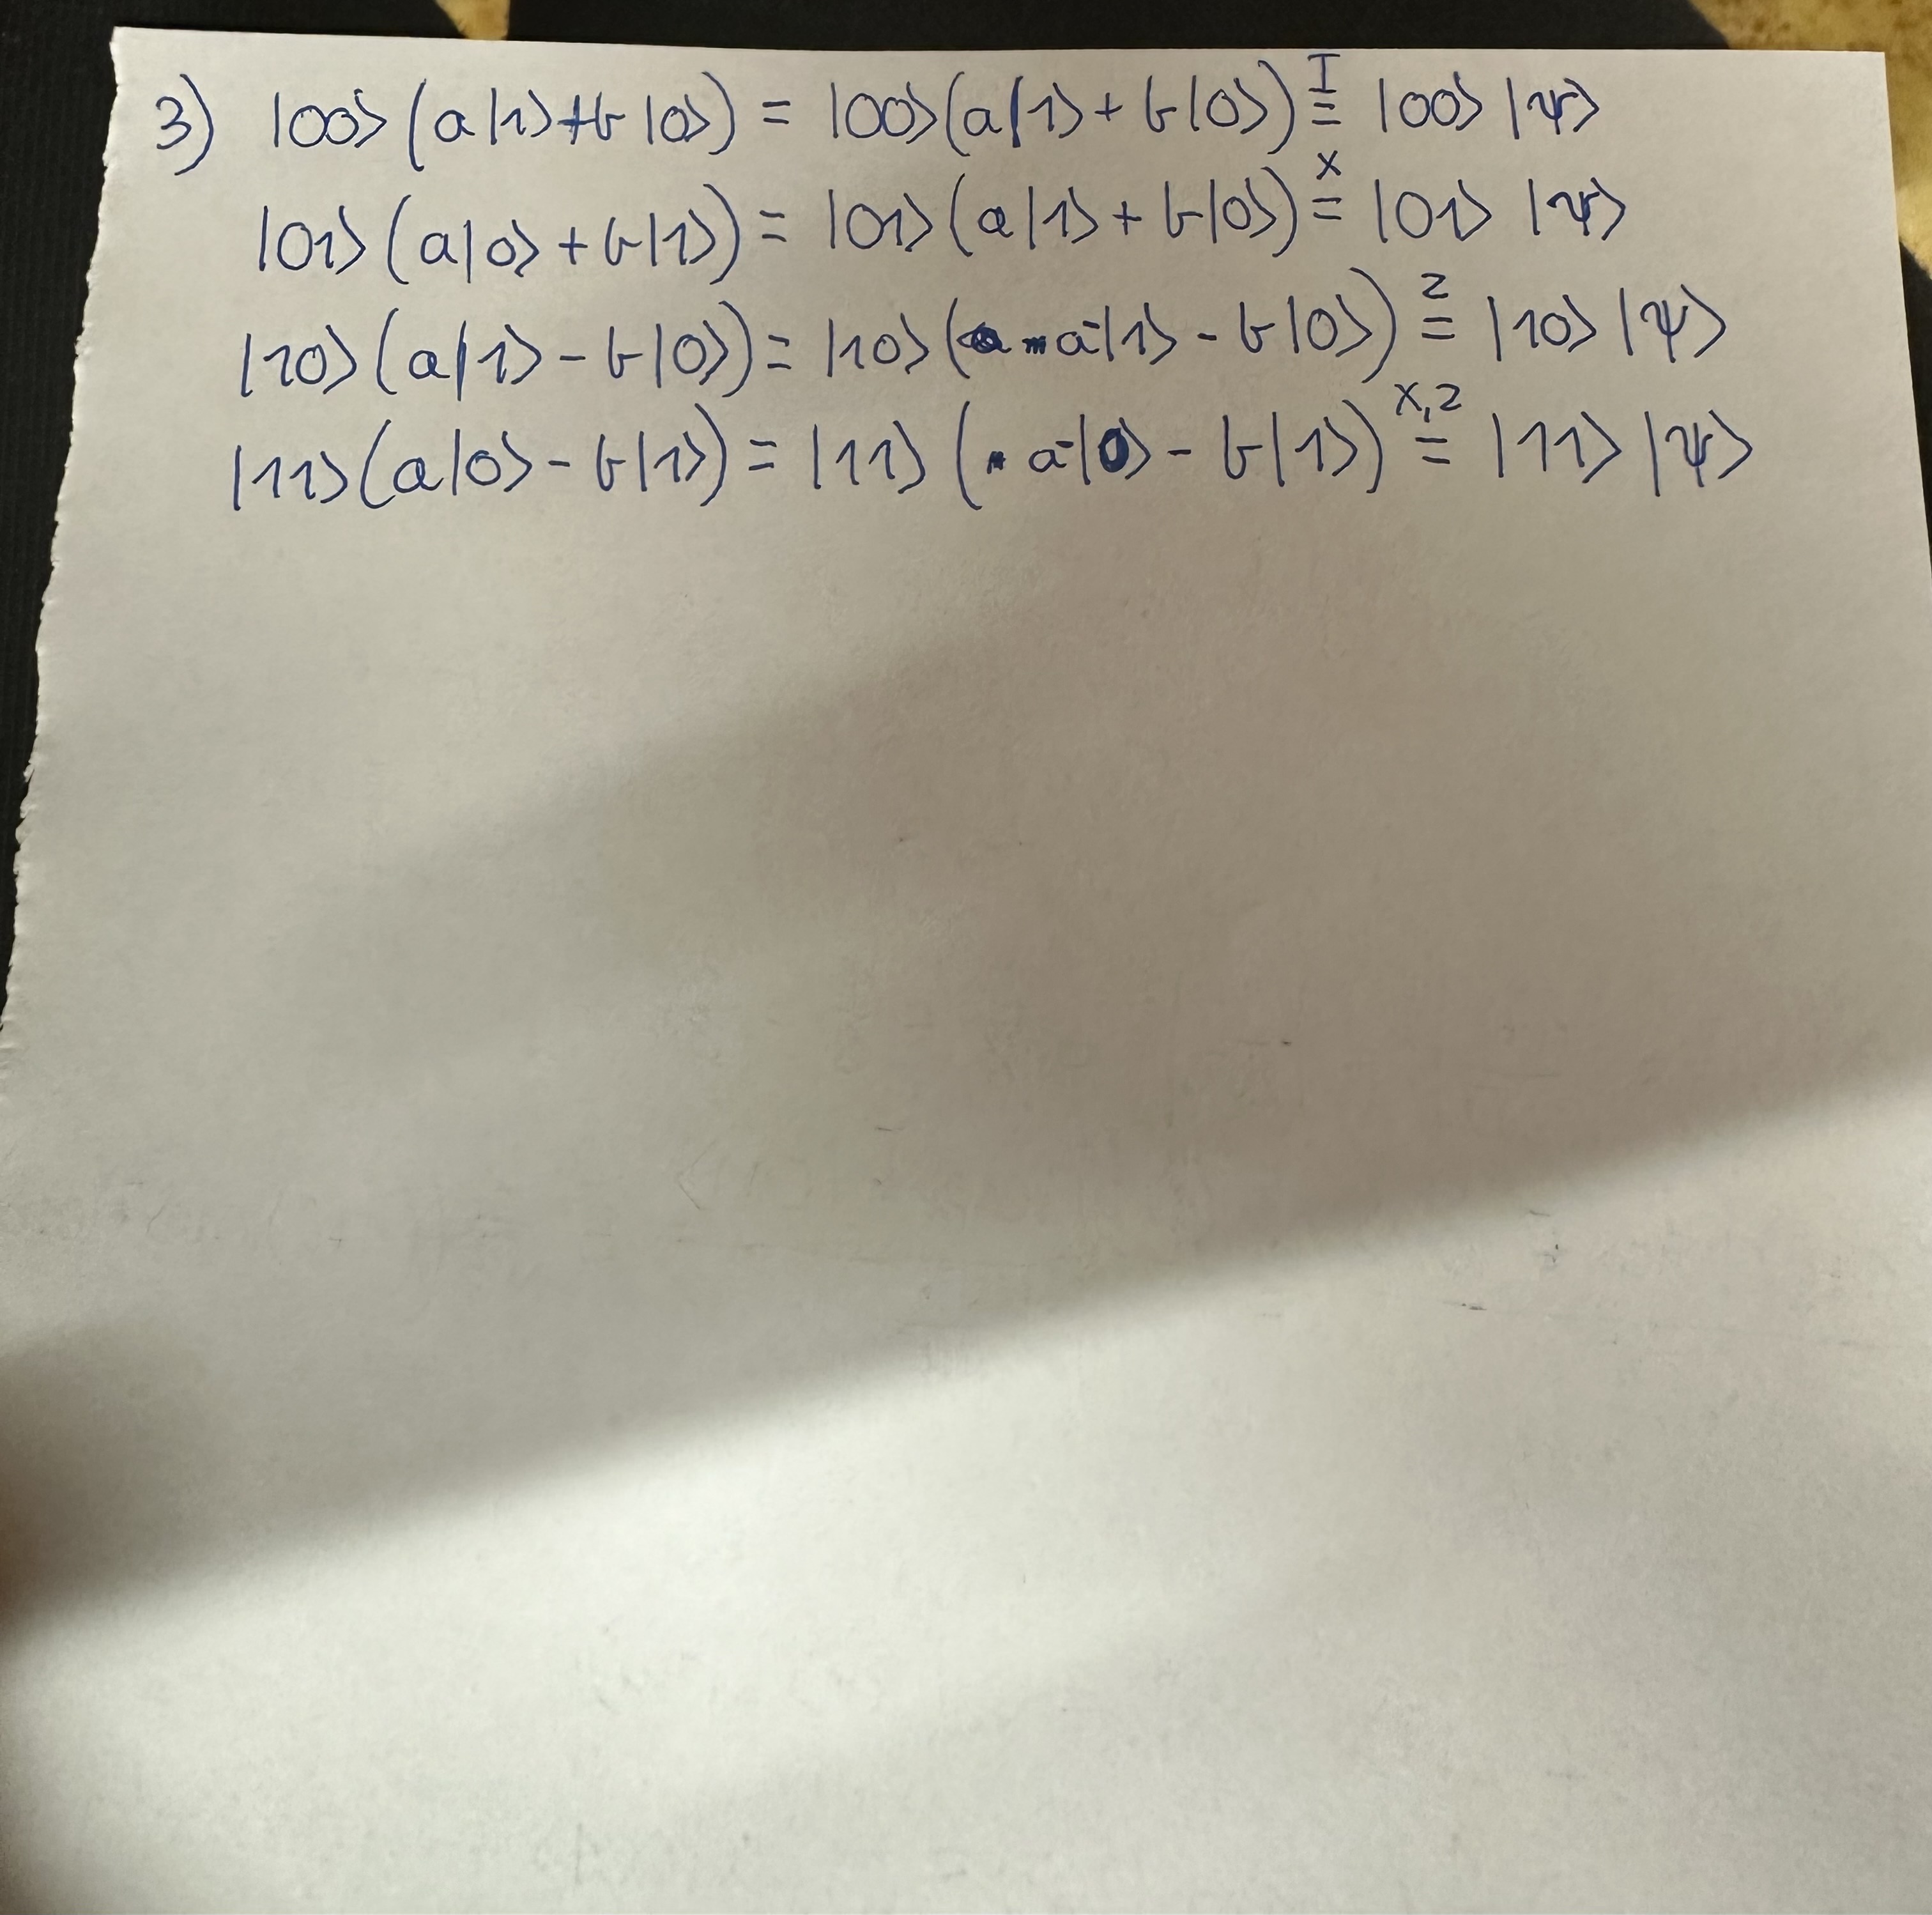 3) |00⟩(a|1⟩+b|0⟩) = |00⟩(a|1⟩+b|0⟩) I= |00⟩|ψ⟩
|01⟩(a|0⟩+b|1⟩) = |01⟩(a|1⟩+b|0⟩) X= |01⟩|ψ⟩
|10⟩(a|1⟩-b|0⟩) = |10⟩(a|1⟩-b|0⟩) Z= |10⟩|ψ⟩
|11⟩(a|0⟩-b|1⟩) = |11⟩(a|0⟩-b|1⟩) X,Z= |11⟩|ψ⟩